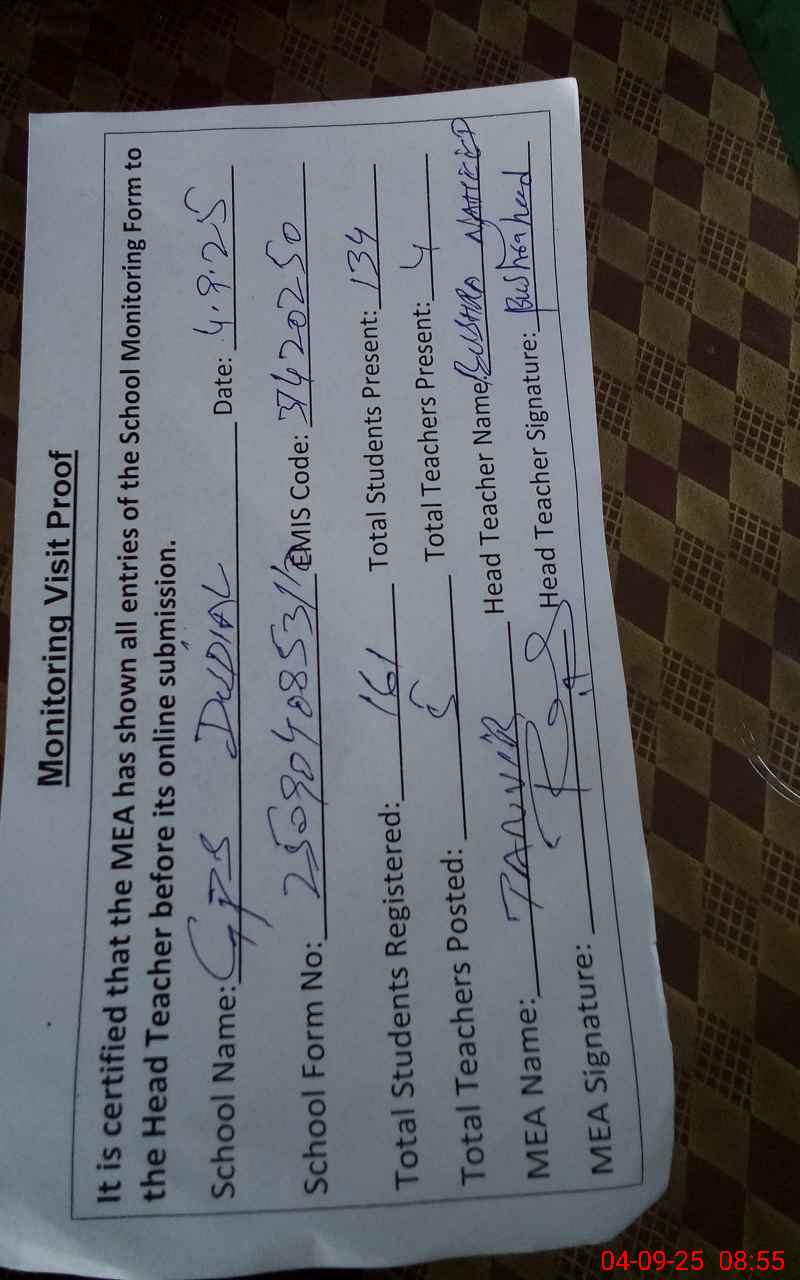 Monitoring Visit Proof
It is certified that the MEA has shown all entries of the School Monitoring Form to
the Head Teacher before its online submission.
School Name: GPS DUDIAL Date: 4.9.25
School Form No: EMIS Code: 37420250
Total Students Registered: 161 Total Students Present: 134
Total Teachers Posted: 5 Total Teachers Present: 4
MEA Name: TANVIR Head Teacher Name: BUSHRA NAHEED
MEA Signature: Head Teacher Signature:
04-09-25 08:55